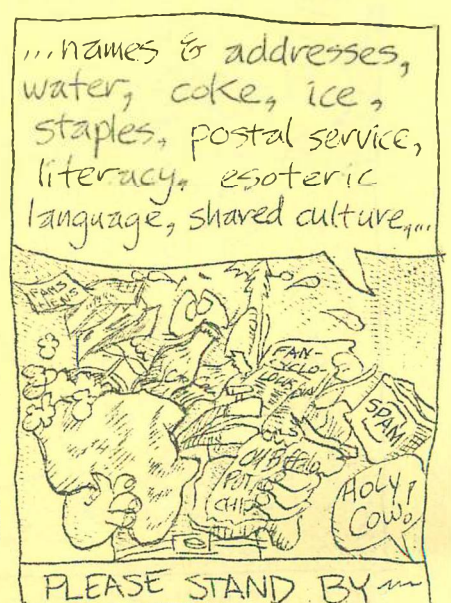 ...names & addresses,
water, coke, ice,
staples, postal service,
literacy, esoteric
language, shared culture,...
FAN-
CYCLO-
SPAM
POT.
CHIPS
HOLY
COW!
PLEASE STAND BY